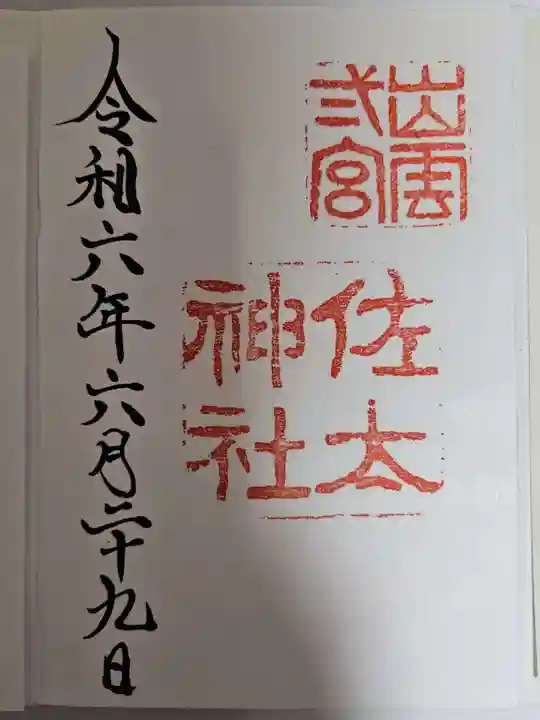 出雲
弎宮
佐太
神社
令和六年六月二十九日